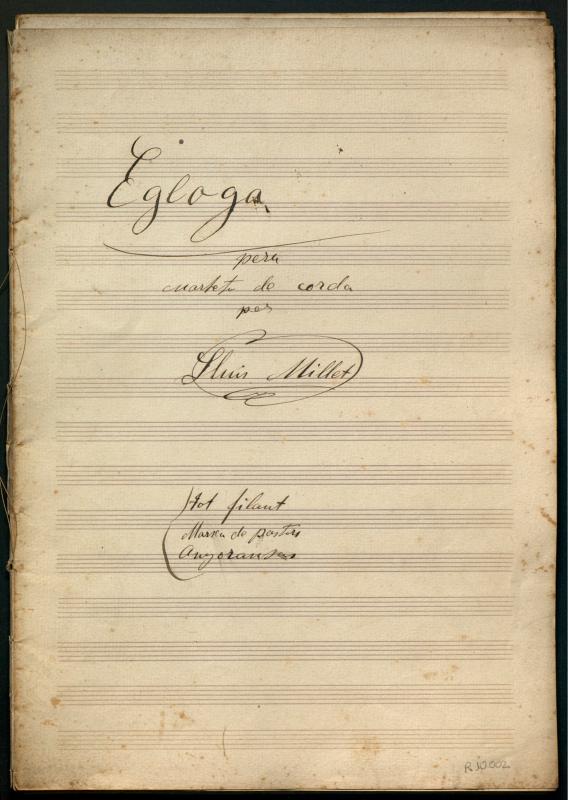 Egloga
pera
cuarteto de corda
per
Lluis Millet
Tot filant
Marxa de pastors
Anyoransas
R 10002